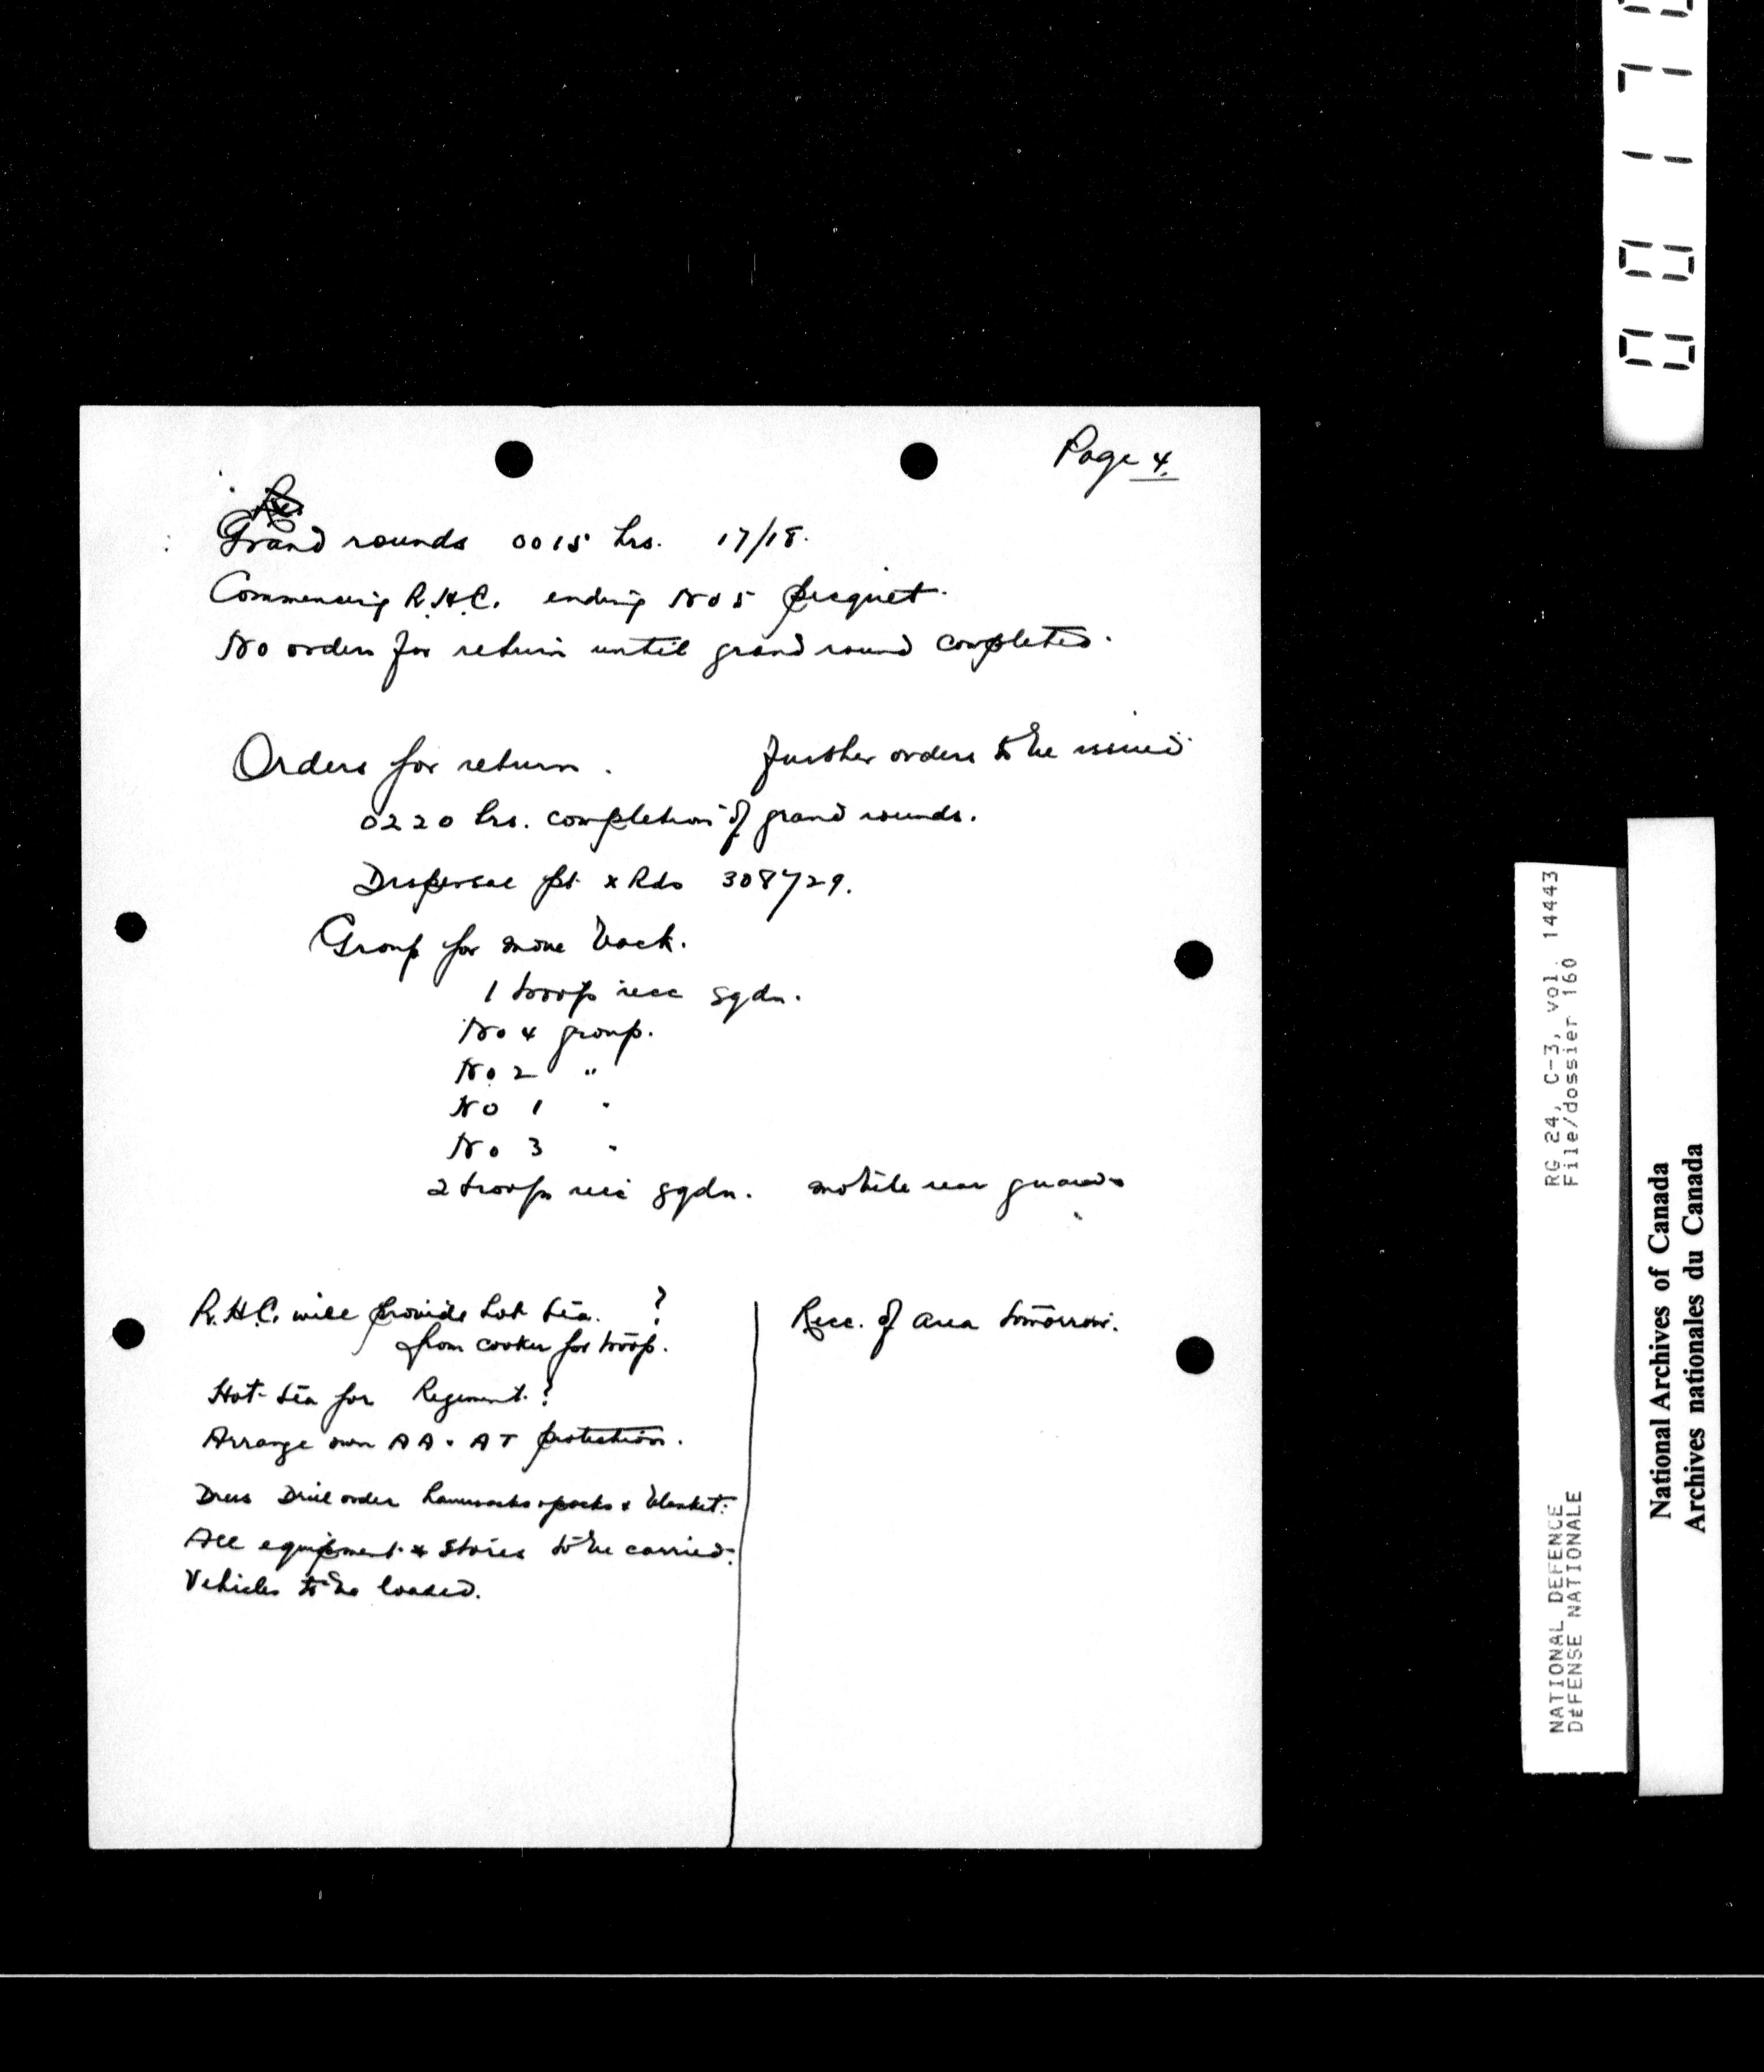 Page 4.
Grand rounds 0015 hrs. 17/18.
Commencing R.H.C. ending No 5 picquet.
No orders for return until grand round completed.
Orders for return. further orders to be issued
0220 hrs. completion of grand rounds.
Dispersal pt. x Rds 308729.
Group for move back.
1 troop recc sqdn.
No 4 group.
No 2 "
No 1 "
No 3 "
2 troops recc sqdn. mobile rear guard
R.H.C. will provide hot tea. ?
from cooker for troop.
Hot tea for Regiment. ?
Arrange own AA & AT protection.
Dress Drill order haversacks packs & blanket.
All equipment & stores to be carried.
Vehicles to be loaded.
Recc. of area tomorrow.
RG 24, C-3, vol. 14443
File/dossier 160
NATIONAL DEFENCE
DÉFENSE NATIONALE
National Archives of Canada
Archives nationales du Canada